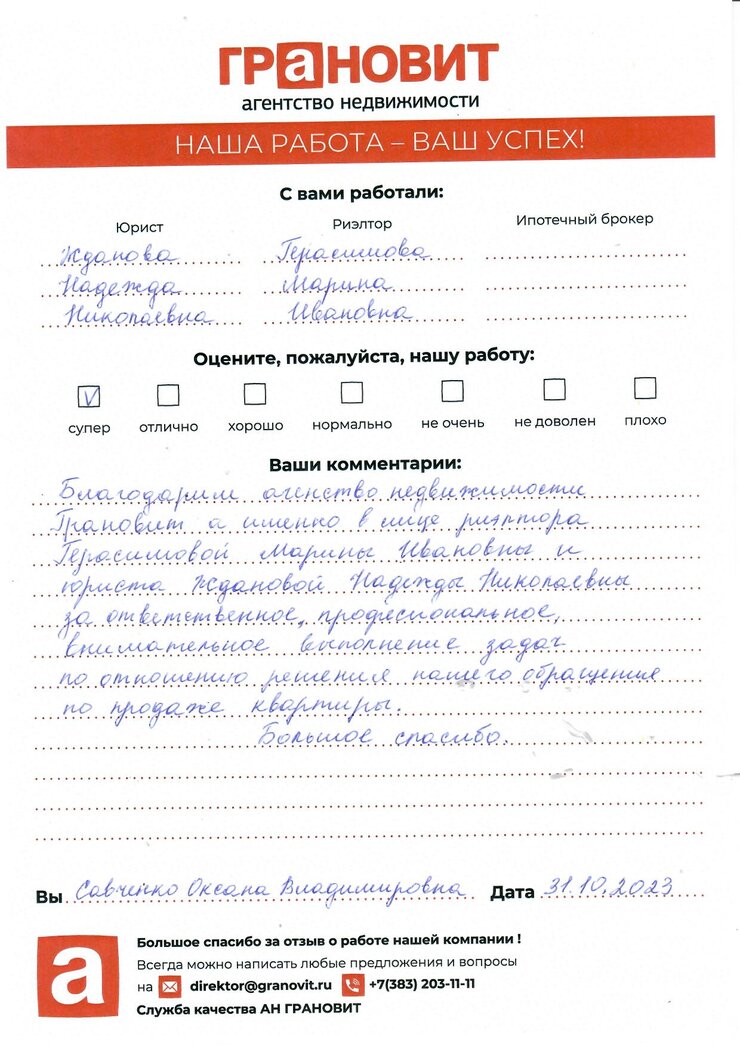 ГРАНОВИТ
агентство недвижимости
НАША РАБОТА – ВАШ УСПЕХ!
С вами работали:
Юрист Риэлтор Ипотечный брокер
Жданова Герасимова
Надежда Марина
Николаевна Ивановна
Оцените, пожалуйста, нашу работу:
супер отлично хорошо нормально не очень не доволен плохо
Ваши комментарии:
Благодарим агенство недвижимости
Грановит а именно в лице риэлтора
Герасимовой Марины Ивановны и
юриста Ждановой Надежды Николаевны
за ответственное, професиональное,
внимательное выполнение задач
по отношению решения нашего обращения
по продаже квартиры.
Большое спасибо.
Вы Савченко Оксана Владимировна Дата 31.10.2023
а
Большое спасибо за отзыв о работе нашей компании !
Всегда можно написать любые предложения и вопросы
на direktor@granovit.ru +7(383) 203-11-11
Служба качества АН ГРАНОВИТ